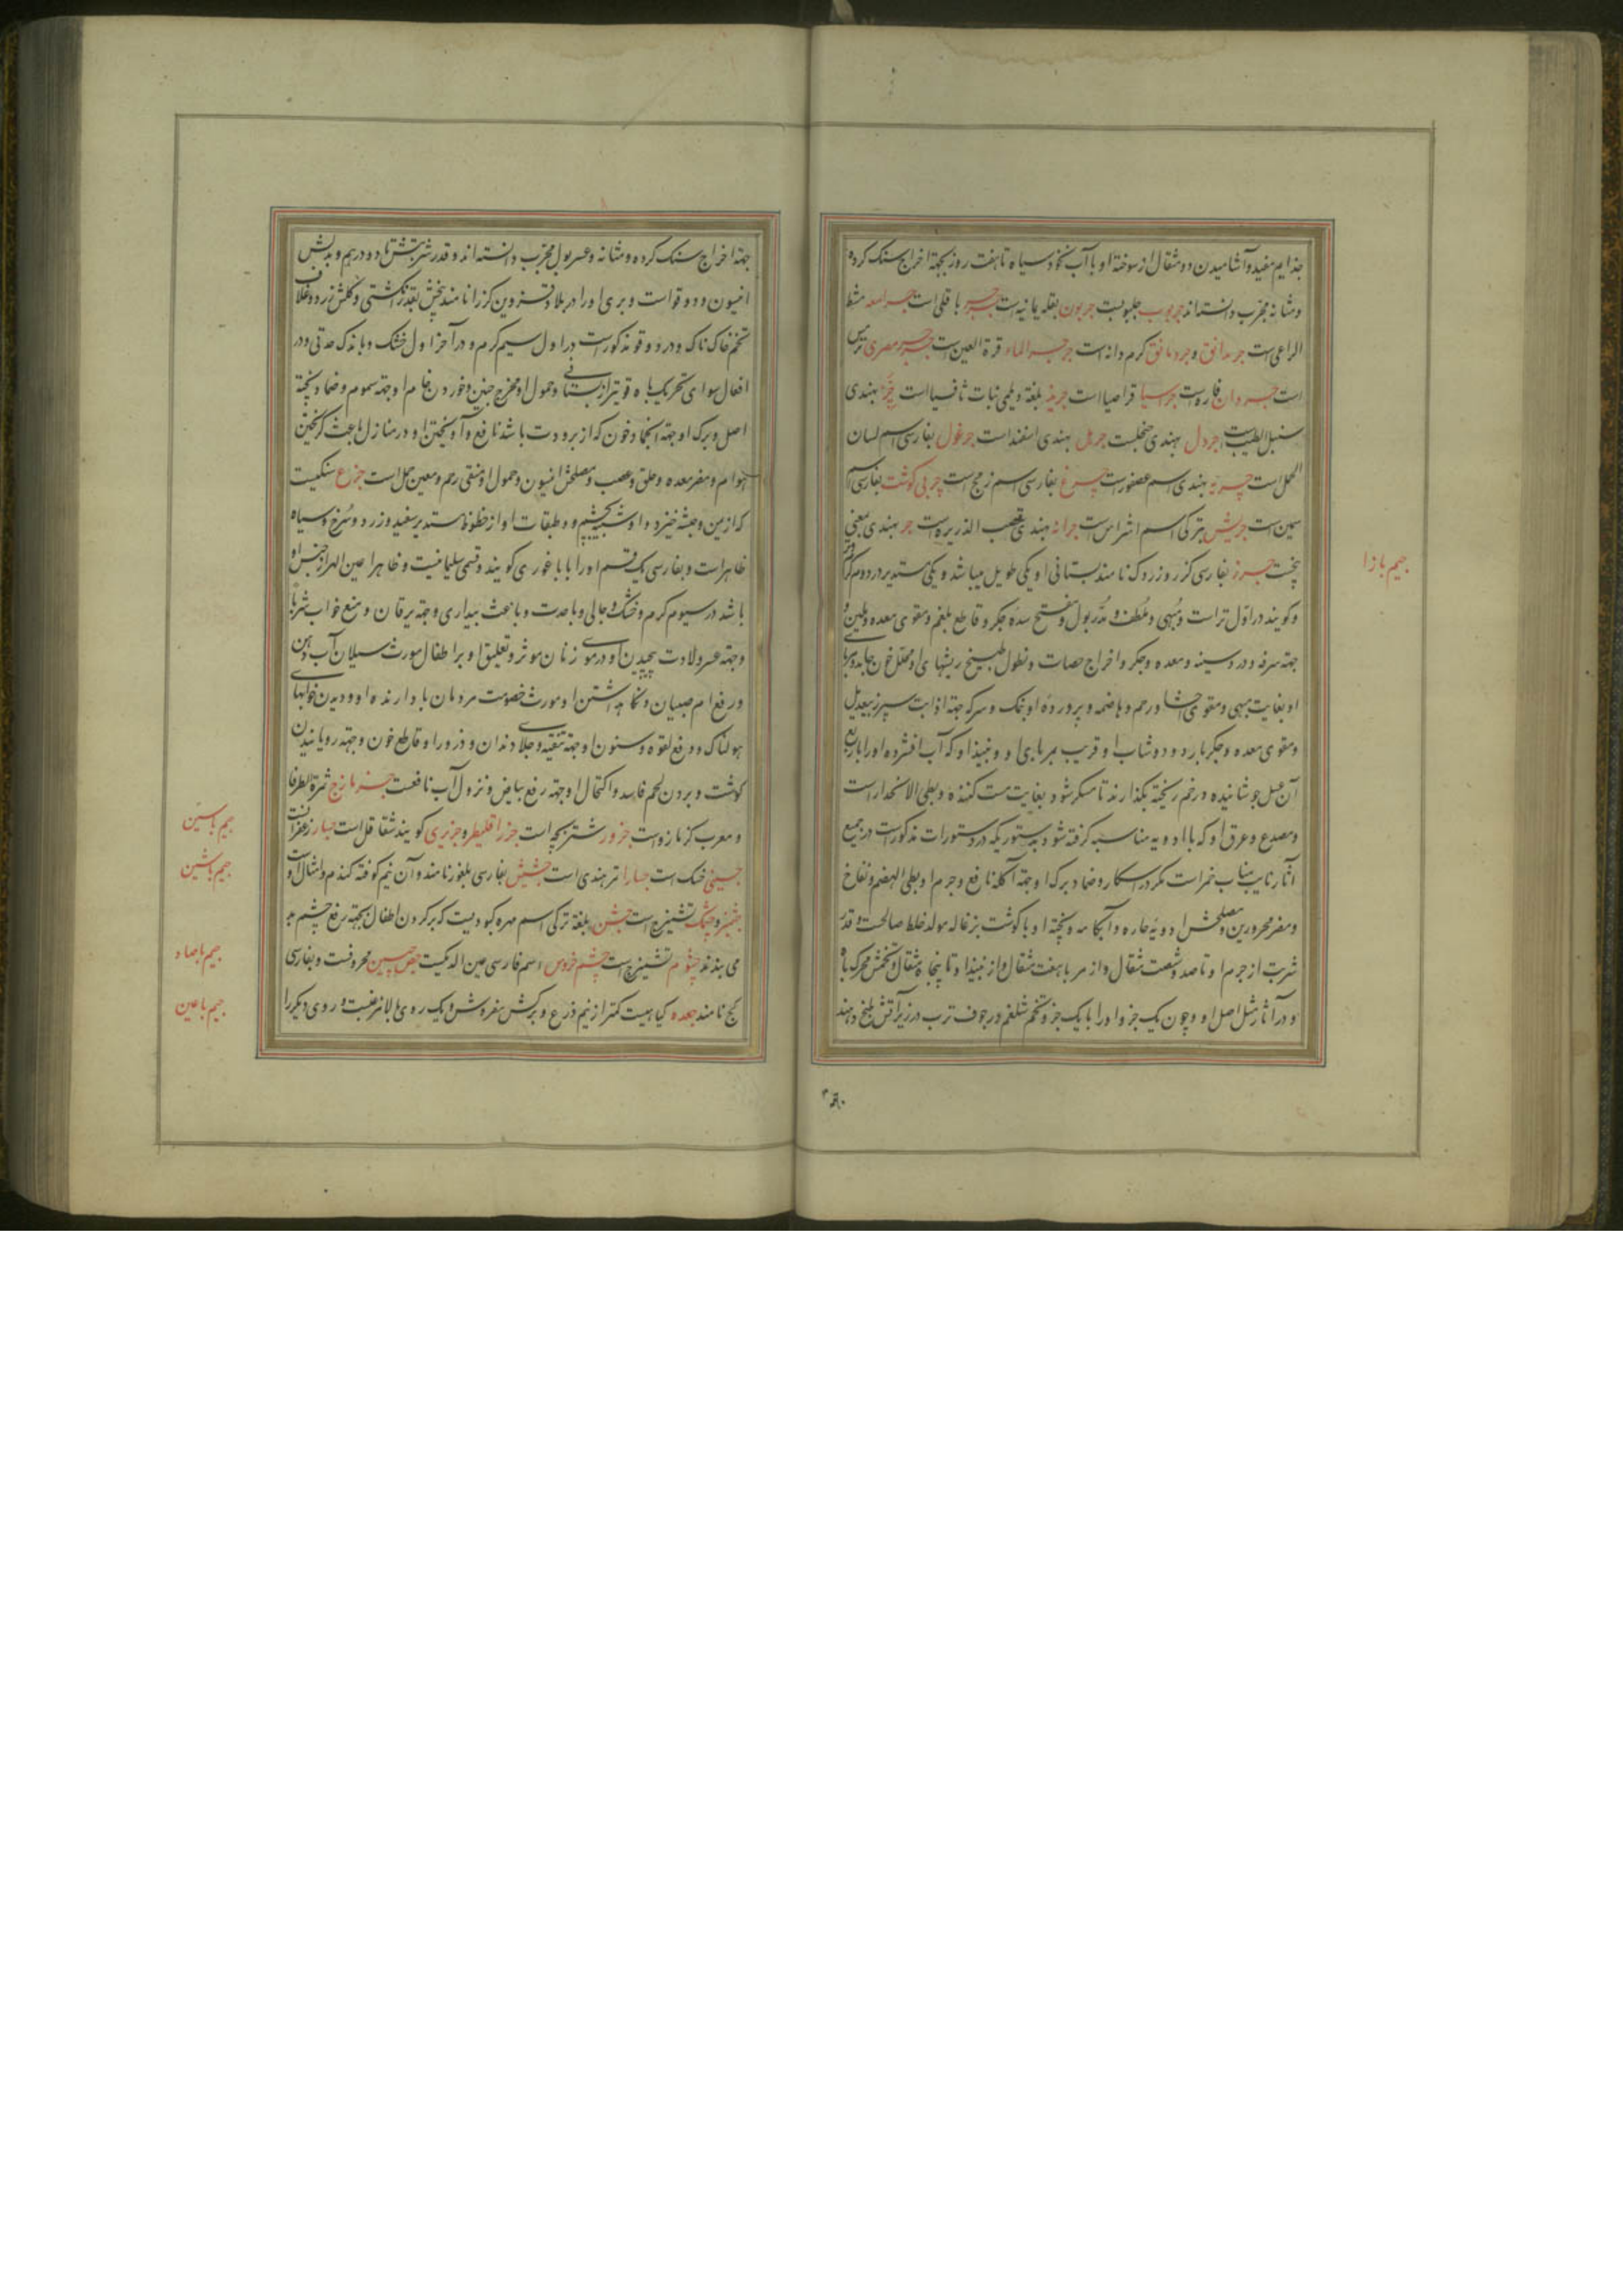 جذام مفید و آشامیدن دو مثقال از سوخته او با آب نخود سیاه تا هفت روز بجهة اخراج سنک کرده
و مثانه مجرب دانسته‌اند جریوب جلبوبست جربون بقله یمانیه است جرجر باقلی است جرامعه مشط
الراعی است جرمدانق و جردمانق کرم دانه است جرجیر الماء قرة العین است جرجیر مصری ترمس
است جردان فاره است جراسیا قراصیا است جریر بلغة دیلمی نبات ثافسیا است بهندی
سنبل الطیب است جردل بهندی است جرمل بهندی اسفند است جرغول بفارسی اسم لسان
الحمل است چریه بهندی اسم عصفور است چرغ بفارسی اسم زمج است چربی کوشت بفارسی اسم
سمین است جریش بترکی اسم اشراس است جرانه بهندی قصب الذریره است جر بهندی بمعنی
بیخست جزر بفارسی کزر و زردک نامند بستانی او یکی طویل میباشد و یکی مستدیر در دوم کرم
و کویند در اول تر است و مبهی و ملطف و مدر بول و مفتح سده جکر و قاطع بلغم و مقوی معده و ملین و
جهة سرفه و درد سینه و معده و جکر و اخراج حصات و نطول طبیخ ریشهای او محلل خون جامد و مربای
او بغایت مبهی و مقوی احشا و رحم و هاضمه و پرورده او بنمک و سرکه جهة اذابت سپرز بیعدیل
و مقوی معده و جکر بارد و دوشاب او قریب بمربای او و نبیذ او که آب افشرده او را با ربع
آن عسل جوشانیده در خم ریخته بکذارند تا مسکر شود بغایت مست کننده و بطی الانحدار است
و مصدع و عرق او که با ادویه مناسبه کرفته شود بدستوریکه در دستورات مذکور است در جمیع
آثار نایب مناب خمر است مکر در اسکار و ضماد برک او جهة آکله نافع و جرم او بطی الهضم و نفاخ
و مضر محرورین و مصلحش ادویه حاره و آبکامه و پخته او با کوشت بزغاله مولد خلط صالحست و قدر
شربت از جرم او تا صد و شصت مثقال و از مربا هفت مثقال و از نبیذ او تا پنجاه مثقال و تخمش محرک باه
و در آثار مثل اصل او و چون یک جزو او را با یک جزو تخم شلغم در جوف ترب در زیر آتش طبخ دهند
جیم با زا
جهة اخراج سنک کرده و مثانه و عسر بول مجرب دانسته‌اند و قدر شربتش تا دو درهم و بدلش
انیسون و دوقو است و بری او را در بلاد قزوین کزر نامند بیخش بقدر انکشتی و کلش زرد و غلاف
تخم خاک ناک و در دوقو مذکور است در اول سیم کرم و در آخر اول خشک و با اندک حدتی و در
افعال سوای تحریک باه قویتر از بستانی و حمول او مخرج جنین و خوردن خام او جهة سموم و ضماد پخته
اصل و برک او جهة انجماد خون که از برودت باشد نافع و آویختن او در منازل باعث کریختن
هوام و مضر معده و حلق و عصب و مصلحش انیسون و حمول او منقی رحم و معین حمل است جزع سنکیست
که از یمن و حبشه خیزد و او شبیه بچشم و طبقات او از خطوط مستدیر سفید و زرد و سرخ و سیاه
ظاهر است و بفارسی یک قسم او را باباغوری کویند و قسمی سلیمانیست و ظاهرا عین الهر از جنس او
باشد در سیوم کرم و خشک و جالی و با حدت و باعث بیداری و جهة یرقان و منع خواب شربا
و جهة عسر ولادت پیچیدن او در موی زنان موثر و تعلیق او بر اطفال مورث سیلان آب دهن
و رفع ام صبیان و نکاه داشتن او مورث خصومت مردمان با دارنده او و دیدن خوابهای
هولناک و رفع لقوه و سنون او جهة تنقیه و جلای دندان و ذرور او قاطع خون و جهة رویانیدن
کوشت و بردن لحم فاسد و اکتحال او جهة رفع بیاض و نزول آب نافعست جزمازج ثمرة الطرفا
و معرب کزمازو است جزور شتر بچه است جزر اقلیطر و جزیری کویند شقاقل است جساد زعفرانست
خشک است تمر هندی است جشیش بفارسی بلغور نامند و آن نیم کوفته کندم و امثال اوست
جشمیزج و چشمک تشمیزج است چشن بلغة ترکی اسم مهره کبودیست که بر کردن اطفال بجهة رفع چشم بد
می بندند چشوم تشمیزج است چشم خروس اسم فارسی عین الدیکست جص جبسین معروفست و بفارسی
کج نامند جعده کیاهیست کمتر از نیم ذرع و برکش مفروش و یک روی بالا مزغبست و روی دیکر را
جیم با سین
جیم با شین
جیم با صاد
جیم با عین